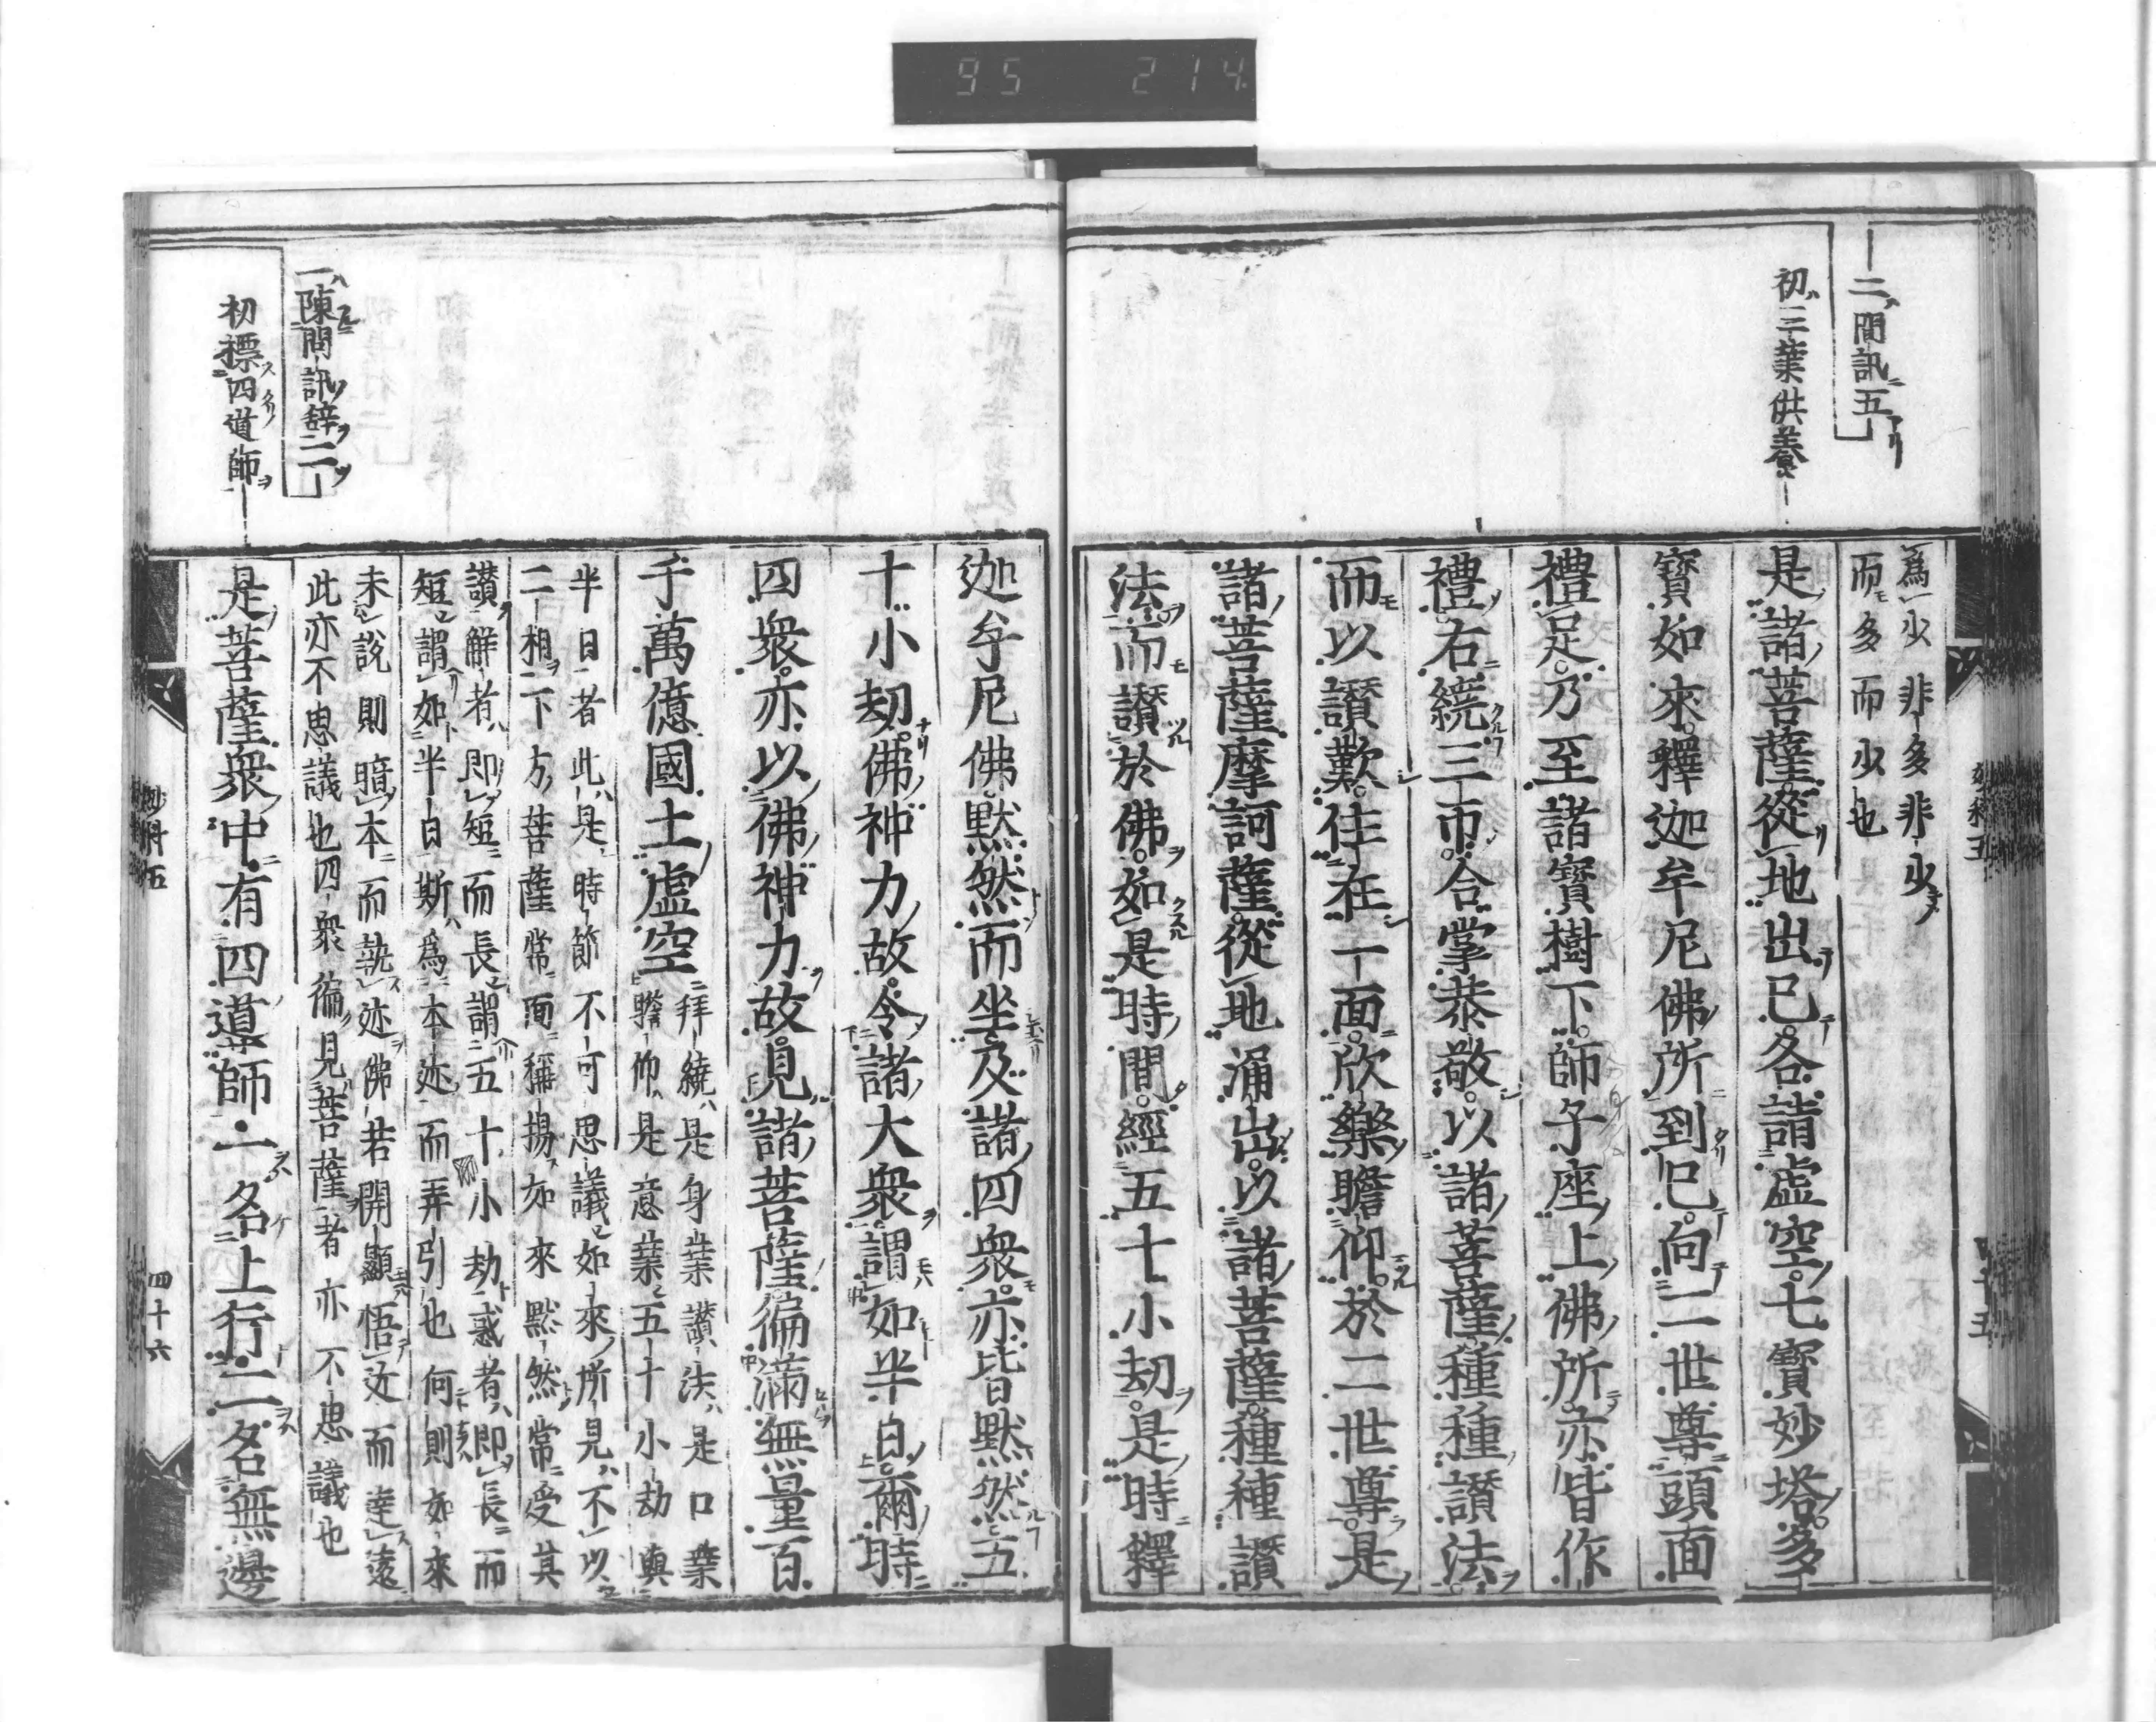 95 214
二問訊五
初三業供養
為少非多非少
而多而少也
是諸菩薩從地出已各詣虛空七寶妙塔多
寶如來釋迦牟尼佛所到已向二世尊頭面
禮足乃至諸寶樹下師子座上佛所亦皆作
禮右繞三帀合掌恭敬以諸菩薩種種讚法
而以讚歎住在一面欣樂瞻仰於二世尊是
諸菩薩摩訶薩從地涌出以諸菩薩種種讚
法而讚於佛如是時間經五十小劫是時釋
四十五
迦牟尼佛默然而坐及諸四衆亦皆默然五
十小劫佛神力故令諸大衆謂如半日爾時
四衆亦以佛神力故見諸菩薩徧滿無量百
千萬億國土虛空
拜繞是身業讚法是口業
瞻仰是意業五十小劫與
半日者此是時節不可思議如來所見不以
二相下方菩薩常面稱揚如來默然常受其
讚解者即短而長謂五十小劫惑者即長而
短謂如半日斯為本迹而弄引也何則如來
未說則暗本而執迹佛若開顯悟近而達遠
此亦不思議也四衆徧見菩薩者亦不思議也
二陳問訊辭二
初標四導師
是菩薩衆中有四導師一名上行二名無邊
四十六